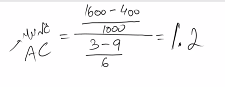 AC = \frac{\frac{1600 - 400}{1000}}{\frac{3 - 9}{6}} = 1.2